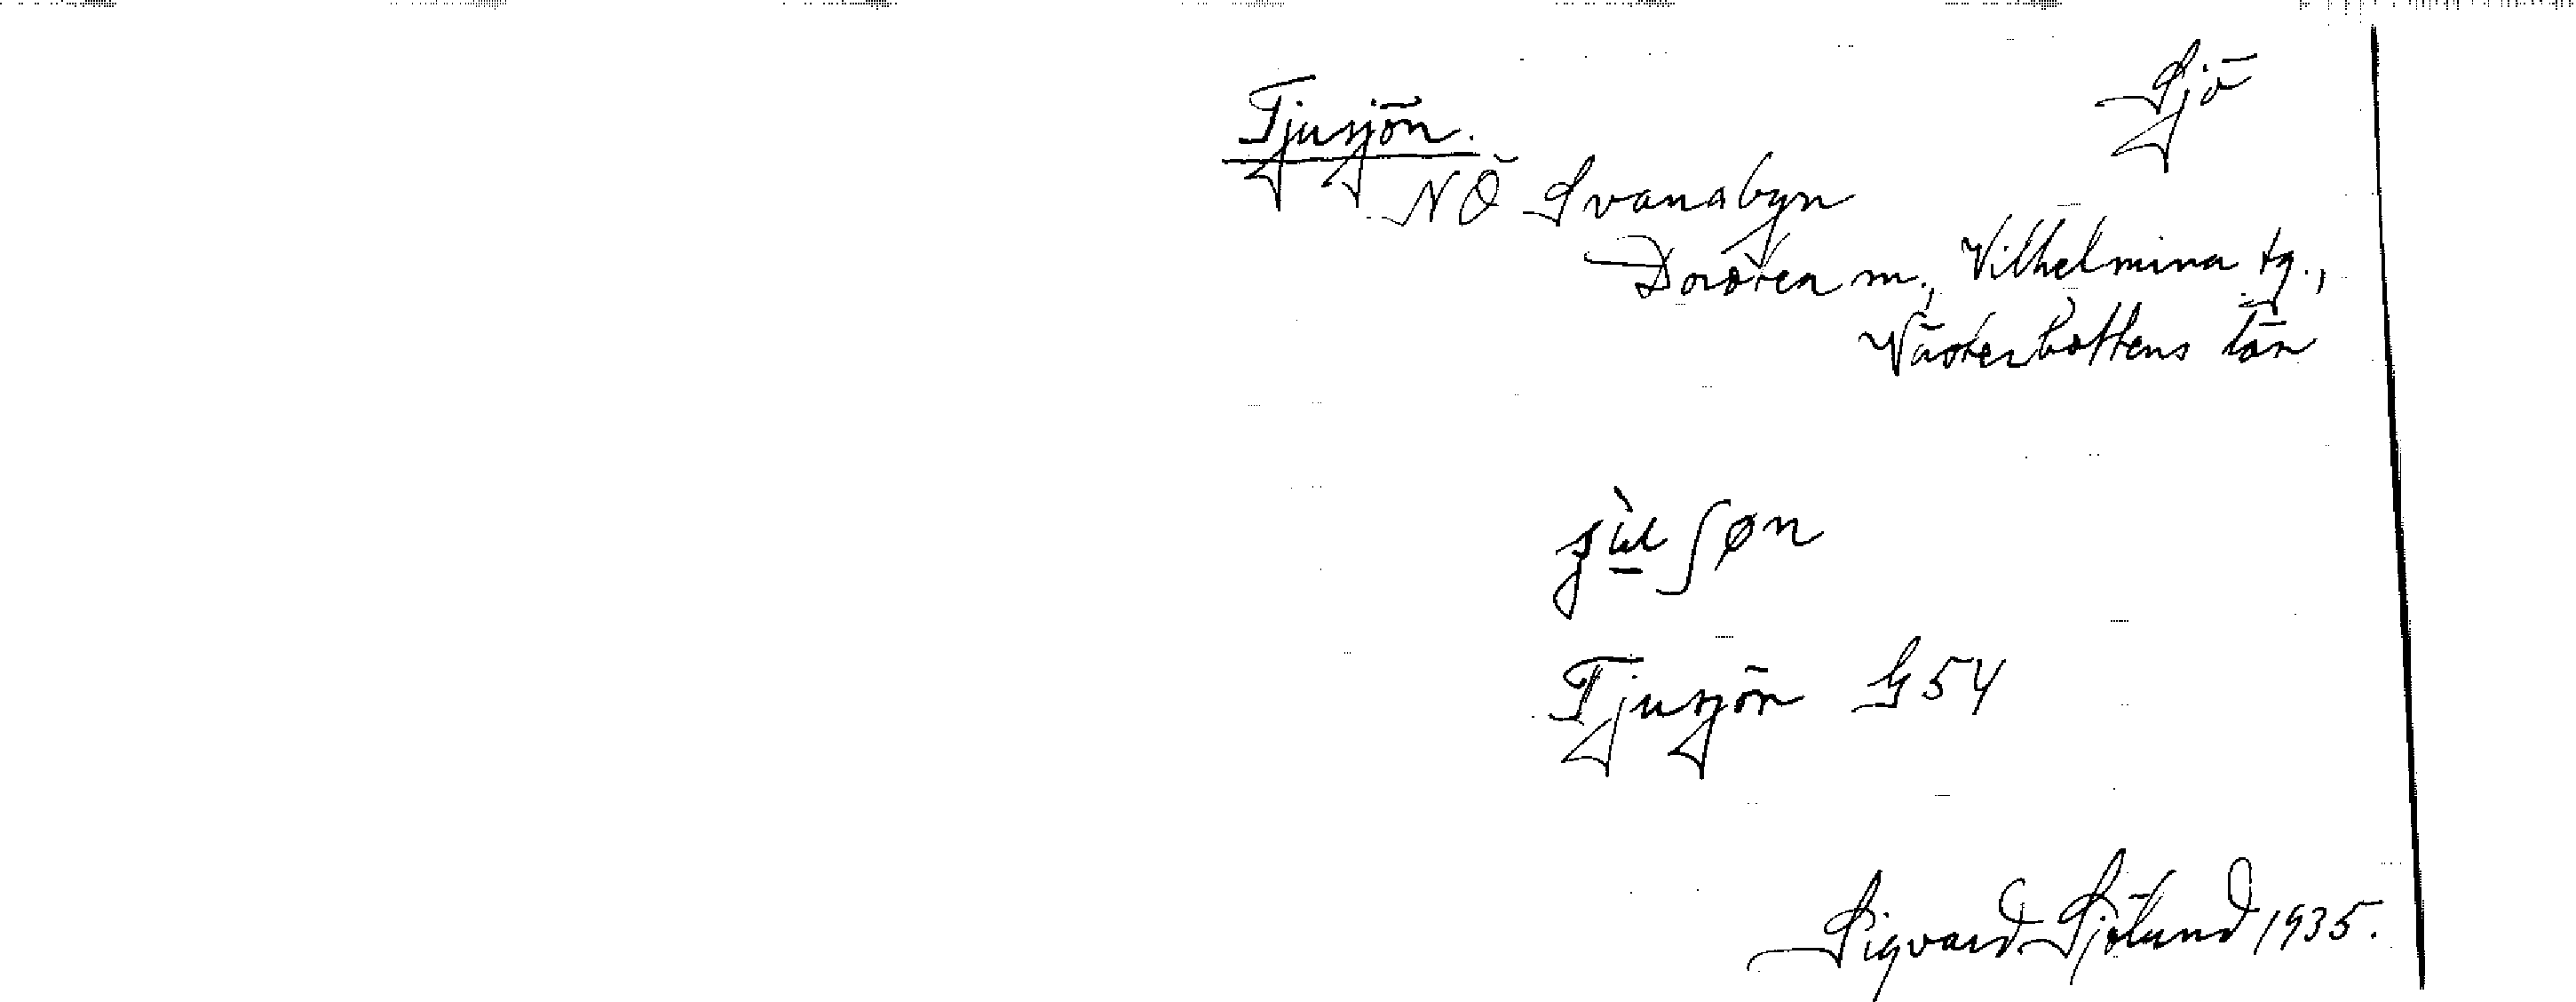 Tjusjön. Sjö
NÖ Svanabyn
Dorotea m., Vilhelmina tg.,
Västerbottens län
Tjusjön G54
Sigvard Sjölund 1935.